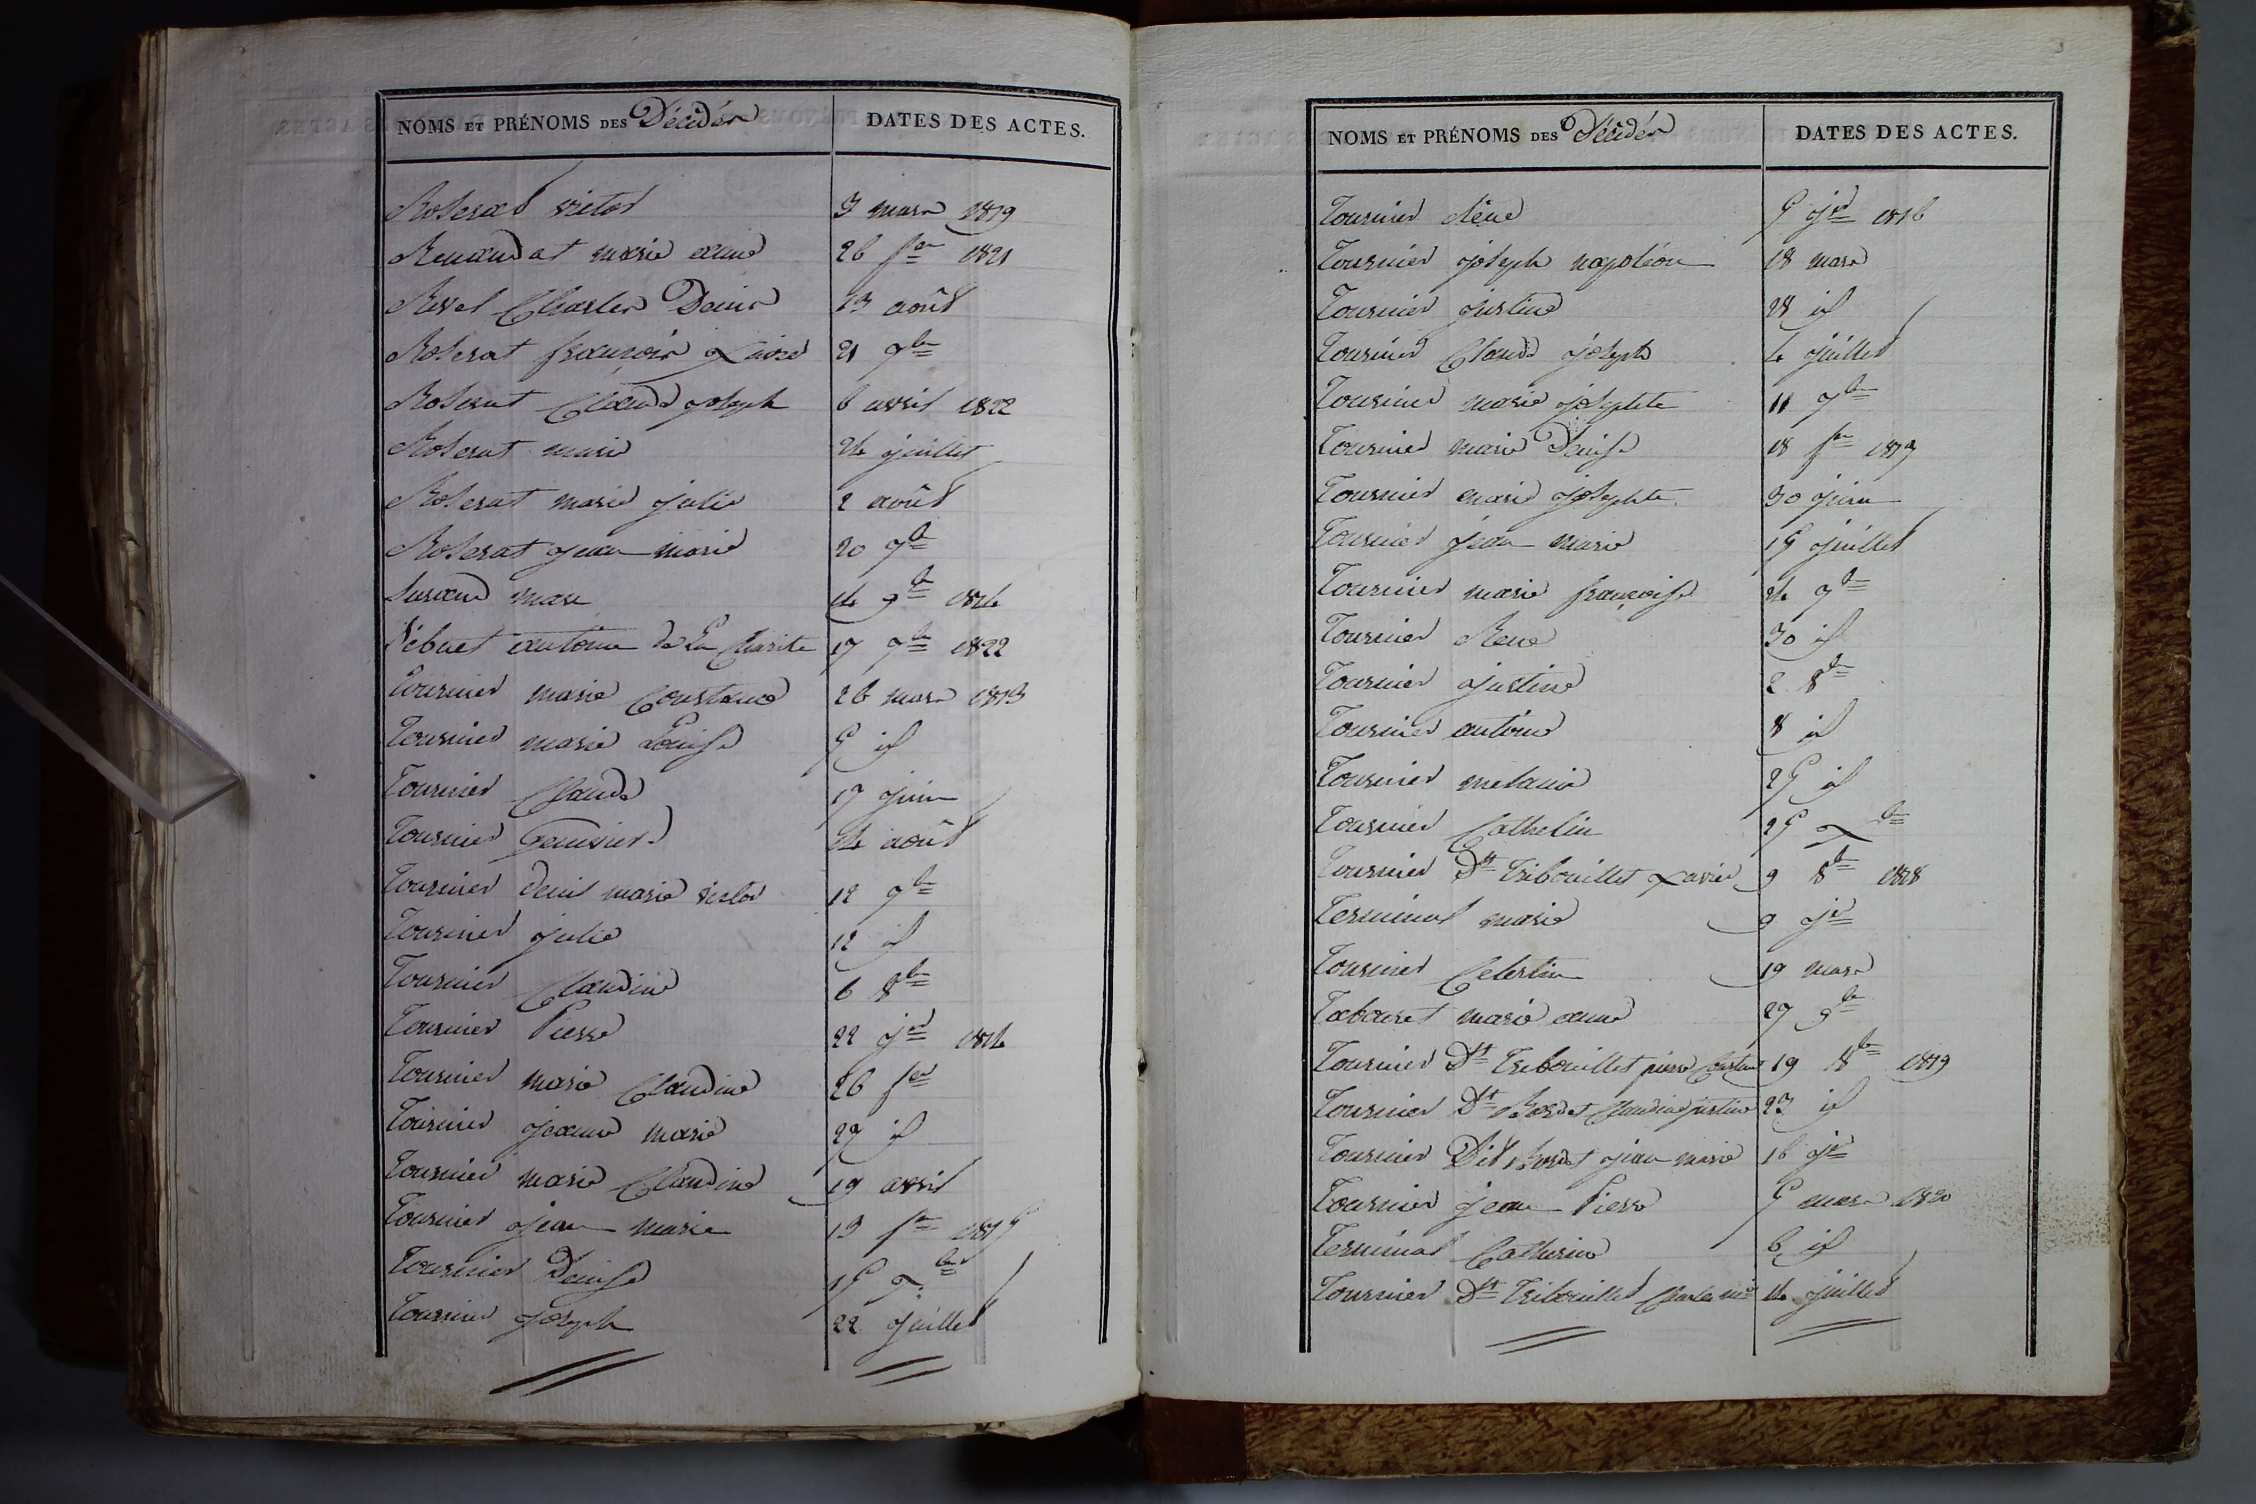 NOMS ET PRÉNOMS DES Décédés DATES DES ACTES.
Roserat victor 3 mars 1819
Renaudat marie anne 26 fer 1821
Revel Charles Denis 13 août
Roserat françois Xavier 21 7bre
Roserat Claude joseph 6 avril 1822
Roserat marie 24 juillet
Roserat marie julie 2 août
Roserat jean marie 20 7bre
marc 14 9bre 1814
antoine de La Charite 17 7bre 1822
Tournier marie Constance 26 mars 1813
Tournier marie Louise 5 id
Tournier Claude 17 juin
Tournier 24 août
Tournier denis marie victor 12 7bre
Tournier julie 12 id
Tournier Claudine 6 8bre
Tournier Pierre 22 jer 1814
Tournier marie Claudine 26 fer
Tournier jeanne marie 27 id
Tournier marie Claudine 19 avril
Tournier jean marie 13 fer 1815
Tournier Denise 15 Xbre
Tournier joseph 22 juillet
NOMS ET PRÉNOMS DES Décédés DATES DES ACTES.
Tournier Réne 5 jer 1816
Tournier joseph napoléon 18 mars
Tournier justine 28 id
Tournier Claude joseph 4 juillet
Tournier marie josephte 11 7bre
Tournier marie Denise 18 fer 1817
Tournier marie josephte 30 juin
Tournier jean marie 15 juillet
Tournier marie françoise 24 7bre
Tournier Rene 30 id
Tournier justine 2 8bre
Tournier antoine 8 id
Tournier melanie 25 id
Tournier Cathelin 25 Xbre
Tournier Dt Tribouillet Xavier 9 8bre 1818
Terminal marie 9 jer
Tournier Celestin 19 mars
Tabouret marie anne 27 9bre
Tournier Dt Tribouillet pierre Constant 19 8bre 1819
Tournier Dt Bardet Claudine justine 23 id
Tournier Dit Bardet jean marie 16 jer
Tournier jean Pierre 5 mars 1820
Terminal Catherine 6 id
Tournier Dt Tribouillet Charles mie 14 juillet